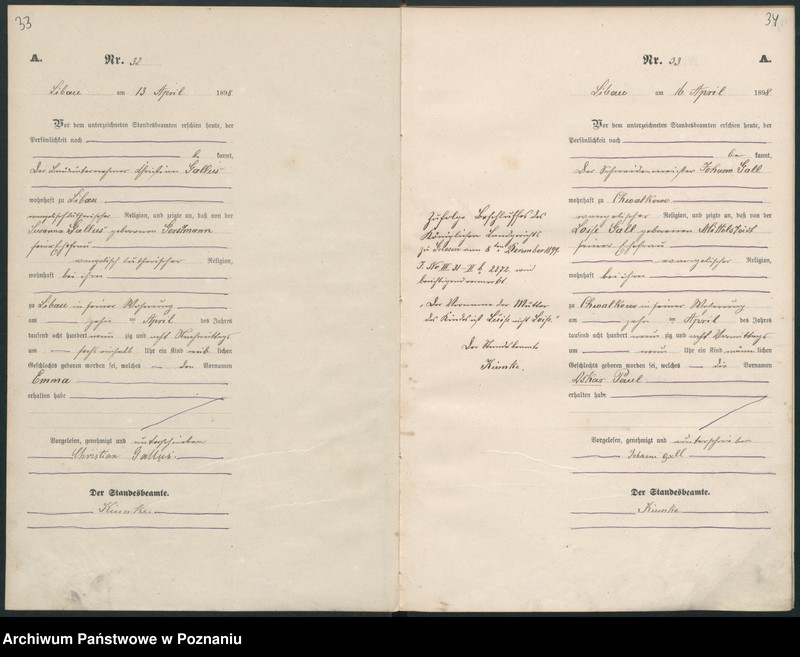 33
A.
Nr. 32
Libau am 13 April 1898
Vor dem unterzeichneten Standesbeamten erschien heute, der
Persönlichkeit nach
be kannt,
Der Bauunternehmer Christian Gallus
wohnhaft zu Libau
evangelischlutherischer Religion, und zeigte an, daß von der
Susanna Gallus geborenen
seiner Ehefrau
evangelisch lutherischer Religion,
wohnhaft bei ihm
zu Libau in seiner Wohnung
am zehn ten April des Jahres
tausend acht hundert neun zig und acht Nachmittags
um sechs einhalb Uhr ein Kind weib lichen
Geschlechts geboren worden sei, welches den Vornamen
Emma
erhalten habe
Vorgelesen, genehmigt und unterschrieben
Christian Gallus.
Der Standesbeamte.
Kiunke.
34
Nr. 33
A.
Libau am 16 April 1898
Vor dem unterzeichneten Standesbeamten erschien heute, der
Persönlichkeit nach
be kannt,
Der Schneidermeister Johann Gall
wohnhaft zu Chwalkowo
evangelischer Religion, und zeigte an, daß von der
Loise Gall geborenen
seiner Ehefrau
evangelischer Religion,
wohnhaft bei ihm
zu Chwalkowo in seiner Wohnung
am zehn ten April des Jahres
tausend acht hundert neun zig und acht Vormittags
um neun Uhr ein Kind männ lichen
Geschlechts geboren worden sei, welches die Vornamen
Oskar Paul
erhalten habe
Vorgelesen, genehmigt und unterschrieben
Johann Gall
Der Standesbeamte.
Kiunke
Zufolge Beschlusses des
Königlichen Landgerichts
zu Gnesen vom 8ten Dezember 1899.
wird
berichtigend vermerkt
„Der Vorname der Mutter
des Kindes ist Luise nicht Loise."
Der Standesbeamte
Kiunke.
Archiwum Państwowe w Poznaniu